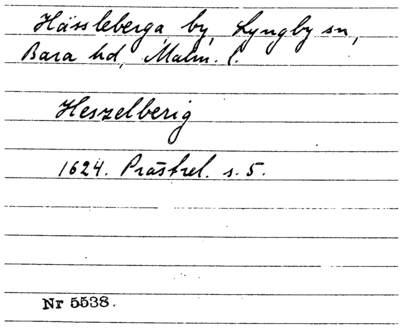 Hässleberga by, Lyngby sn,
Bara hd, Malm. l.
Heszelberig
1624. Prästrel. s. 5.
Nr 5538.